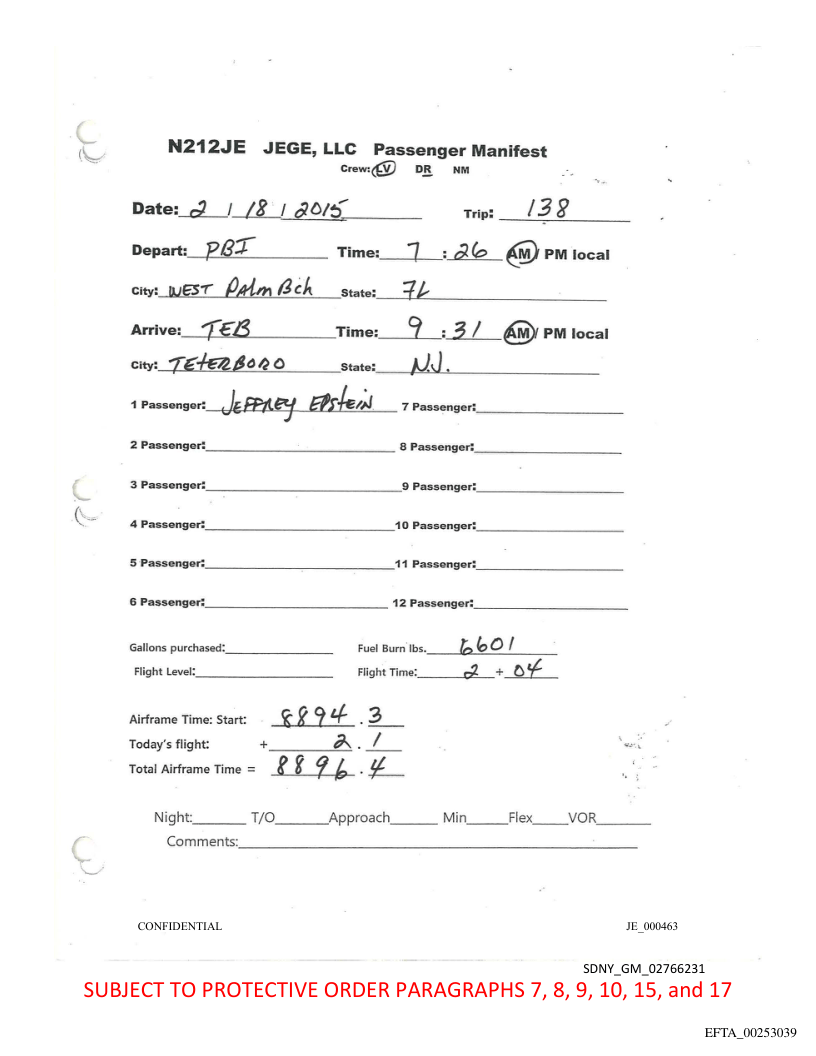 N212JE JEGE, LLC Passenger Manifest
Crew: LV DR NM
Date: 2 / 18 / 2015 Trip: 138
Depart: PBI Time: 7 : 26 AM/ PM local
City: WEST PALM Bch State: FL
Arrive: TEB Time: 9 : 31 AM/ PM local
City: TETERBORO State: N.J.
1 Passenger: JEFFREY EPSTEIN 7 Passenger:
2 Passenger: 8 Passenger:
3 Passenger: 9 Passenger:
4 Passenger: 10 Passenger:
5 Passenger: 11 Passenger:
6 Passenger: 12 Passenger:
Gallons purchased: Fuel Burn lbs. 6601
Flight Level: Flight Time: 2 + 04
Airframe Time: Start: 8894.3
Today's flight: + 2.1
Total Airframe Time = 8896.4
Night: T/O Approach Min Flex VOR
Comments:
CONFIDENTIAL JE_000463
SDNY_GM_02766231
SUBJECT TO PROTECTIVE ORDER PARAGRAPHS 7, 8, 9, 10, 15, and 17
EFTA_00253039